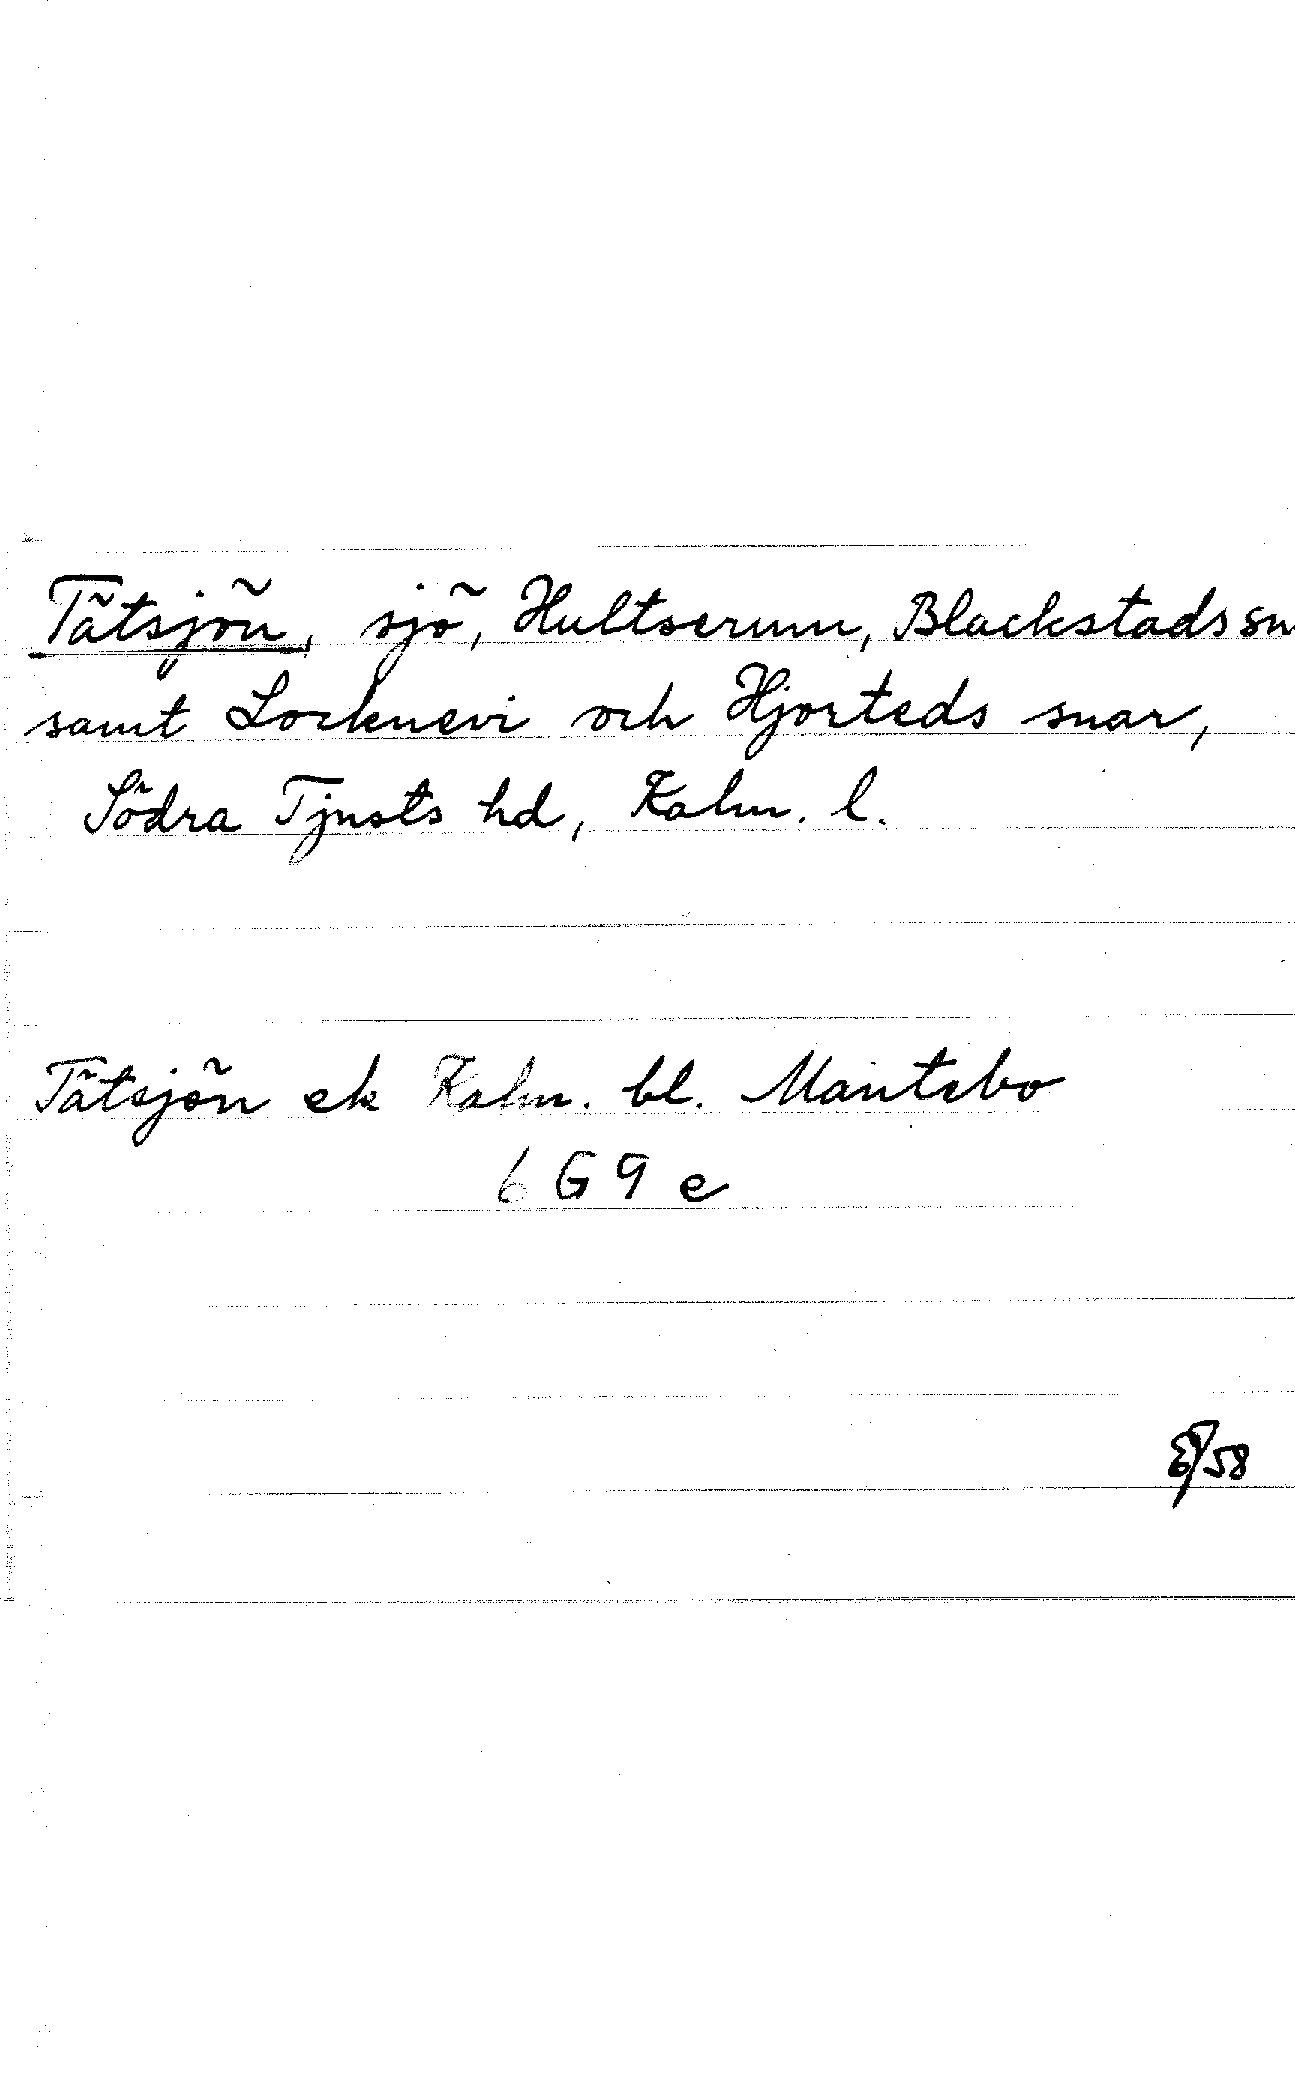 Tätsjön, sjö, Hultserum, Blackstads sn
samt Locknevi och Hjorteds snar,
Södra Tjusts hd, Kalm. l.
Tätsjön ek Kalm. bl. Mäntebo
6 G 9 e
58